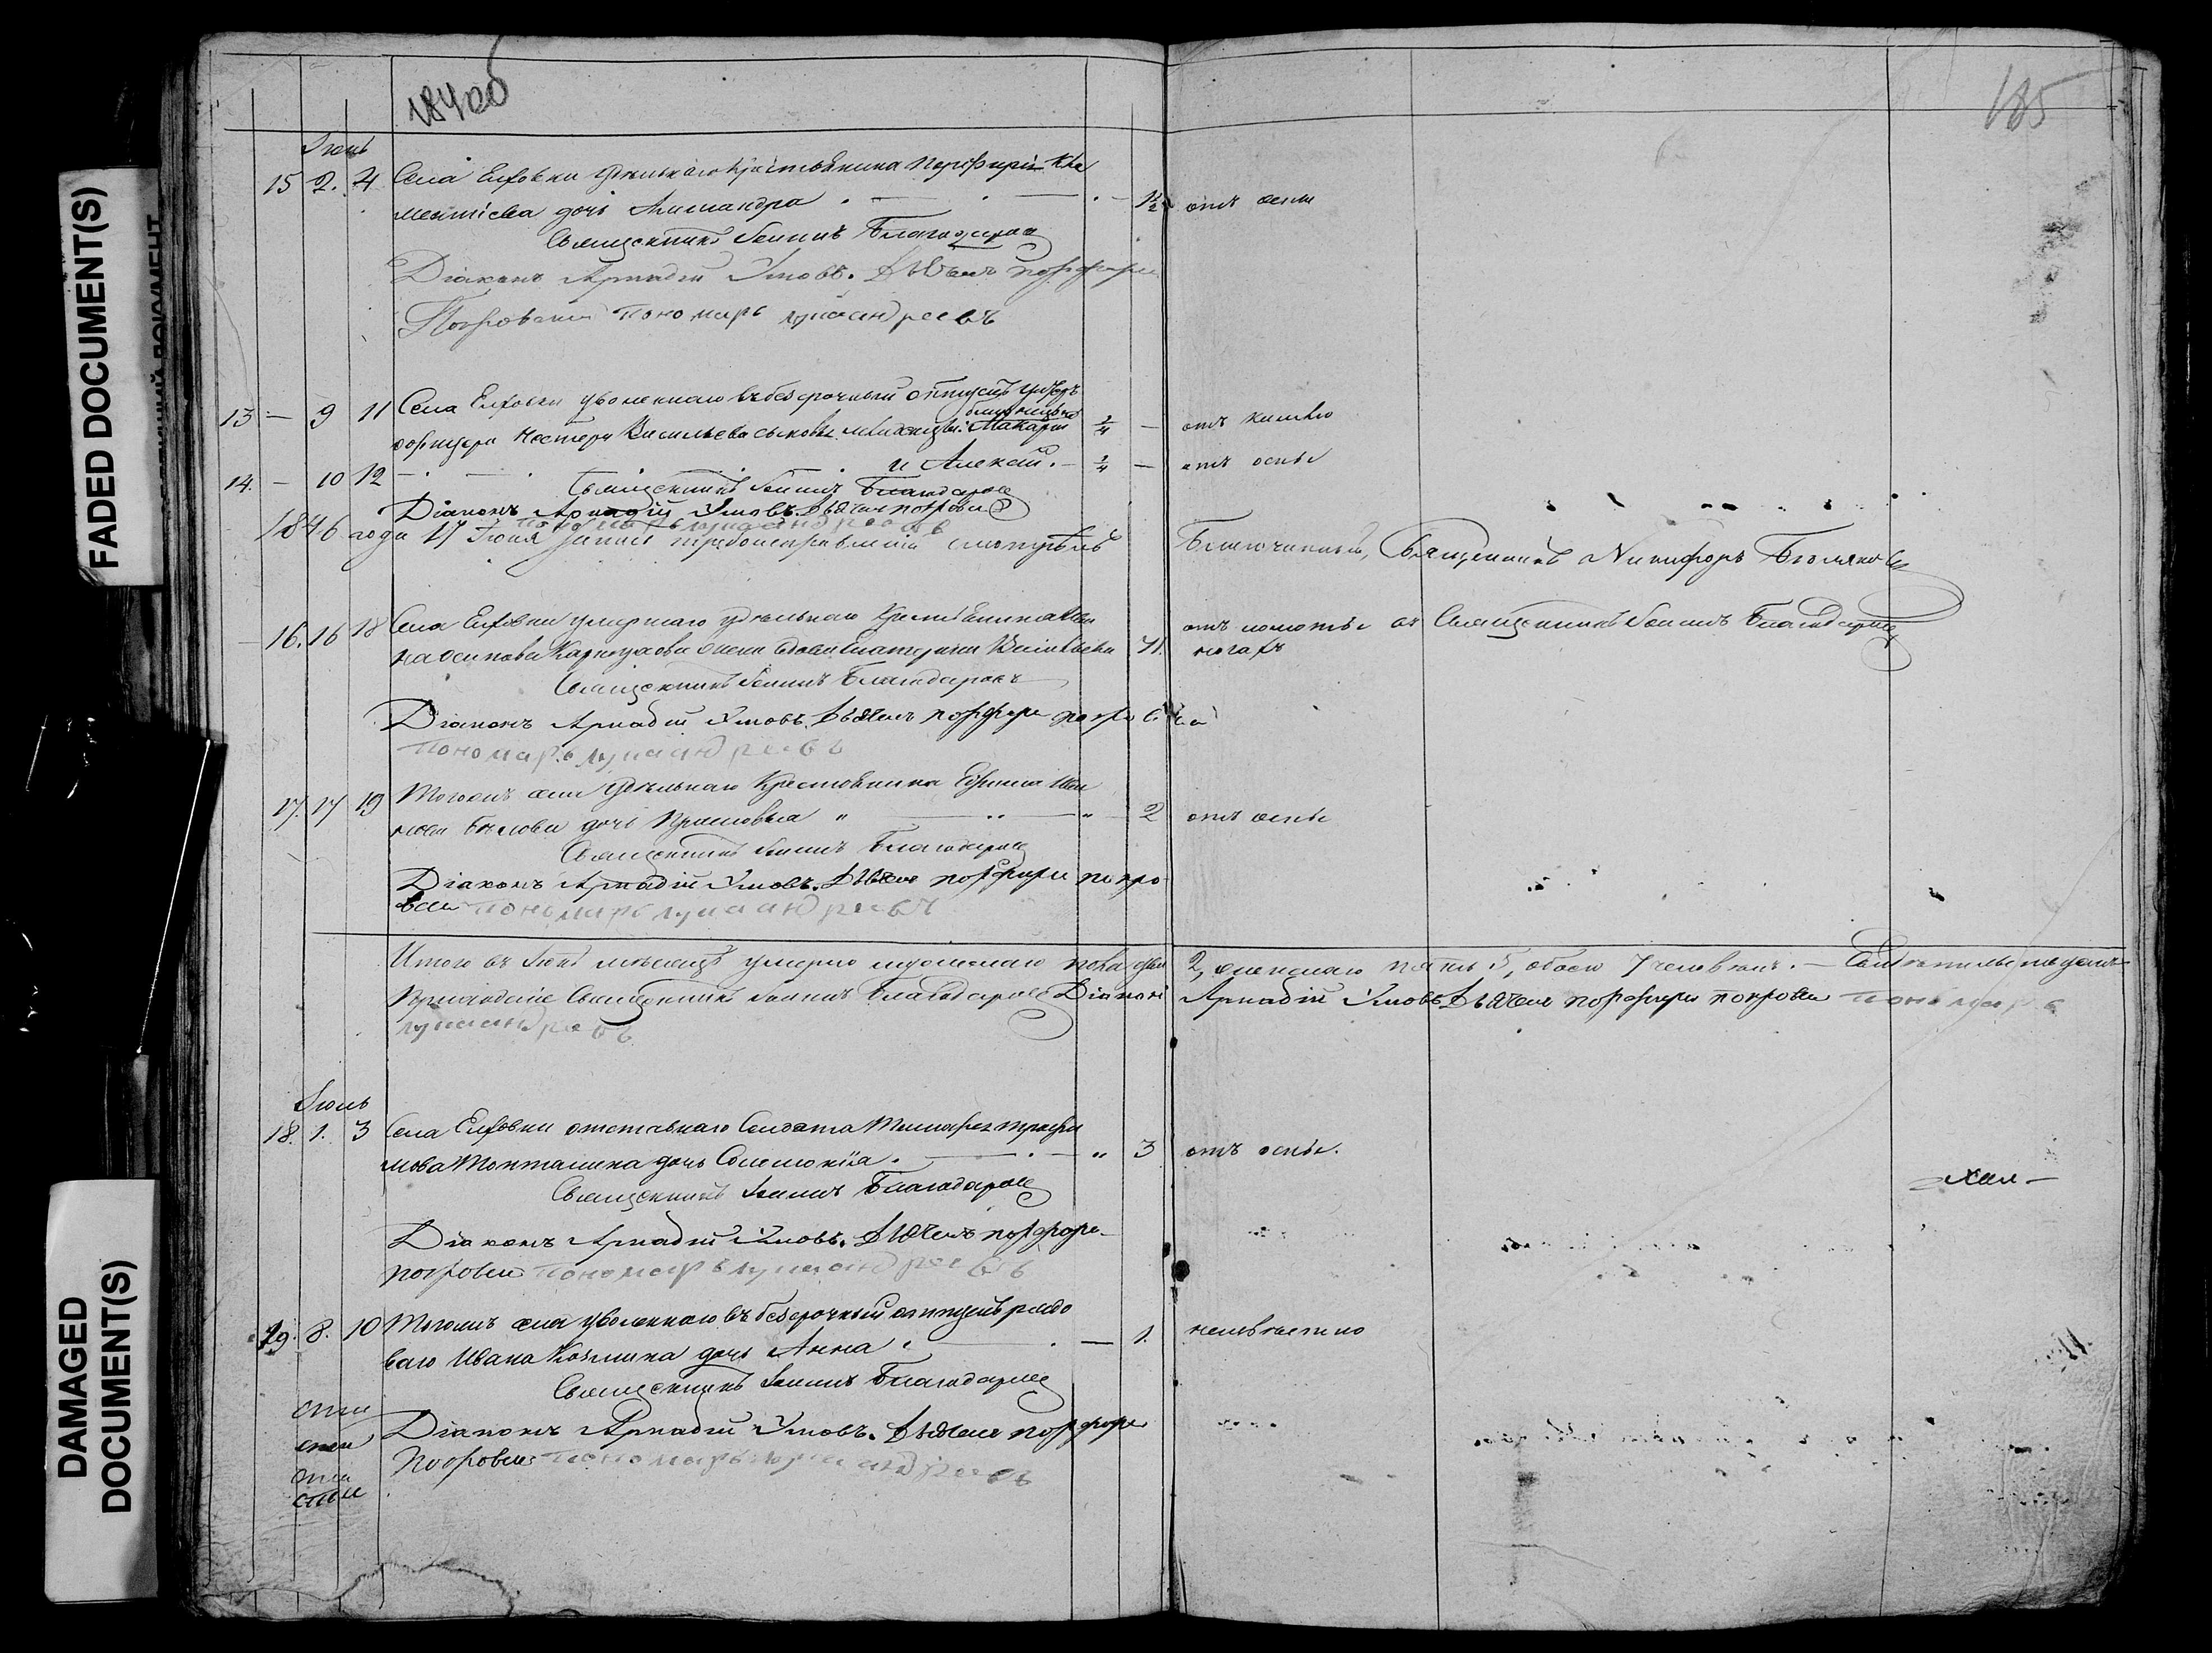 184 об
185
FADED DOCUMENT(S)
DAMAGED
DOCUMENT(S)
Іюнь
15 2. 4 Села Елховки удѣльнаго крестьянина Порфирія Кле
ментіева дочь Александра 1½ отъ оспы
Священникъ Іоаннъ Благодаровъ
Діаконъ Аркадій Умовъ. Дьячекъ Порфирій
Покровскій Пономарь Лука Андреевъ
13 — 9 11 Села Елховки уволеннаго въ безсрочный отпускъ унтеръ
офицера Нестера Васильева сыновья младенцы Макарій ¾ — отъ кашлю
14. — 10 12 и Алексѣй. ¾ — отъ оспы
Священникъ Іоаннъ Благодаровъ
Діаконъ Аркадій Умовъ. Дьячекъ Покровскій
Пономарь Лука Андреевъ
1846 года 17 Іюня
Благочинный, Священникъ Никифоръ
16. 16 18 Села Елховки умершаго удѣльнаго крестьянина
Осипова жена вдова Екатерина Васильева 71. отъ ломоты въ ногахъ Священникъ Іоаннъ Благодаровъ
Священникъ Іоаннъ Благодаровъ
Діаконъ Аркадій Умовъ. Дьячекъ Порфирій Покровскій
Пономарь Лука Андреевъ
17. 17 19 Тогожъ села удѣльнаго крестьянина Ефима Ива
нова Бѣлова дочь Прасковья " " " 2 отъ оспы
Священникъ Іоаннъ Благодаровъ
Діаконъ Аркадій Умовъ. Дьячекъ Порфирій Покро
вскій Пономарь Лука Андреевъ
Итого въ Іюнѣ мѣсяцѣ умерло мужескаго пола два 2, женскаго пять 5, обоего 7 человѣкъ. —
Священникъ Іоаннъ Благодаровъ Діаконъ Аркадій Умовъ Дьячекъ Порфирій Покровскій Пономарь
Лука Андреевъ
Іюль
18. 1. 3 Села Елховки отставнаго Солдата Трофи
мова дочь Соломонія. " 3 отъ оспы.
Священникъ Іоаннъ Благодаровъ
Діаконъ Аркадій Умовъ. Дьячекъ Порфирій
Покровскій Пономарь Лука Андреевъ
19. 8. 10 Тогожъ села уволеннаго въ безсрочный отпускъ рядо
ваго Ивана Козмина дочь Анна — 1. неизвѣстно
Священникъ Іоаннъ Благодаровъ
Діаконъ Аркадій Умовъ. Дьячекъ Порфирій
Покровскій Пономарь Лука Андреевъ